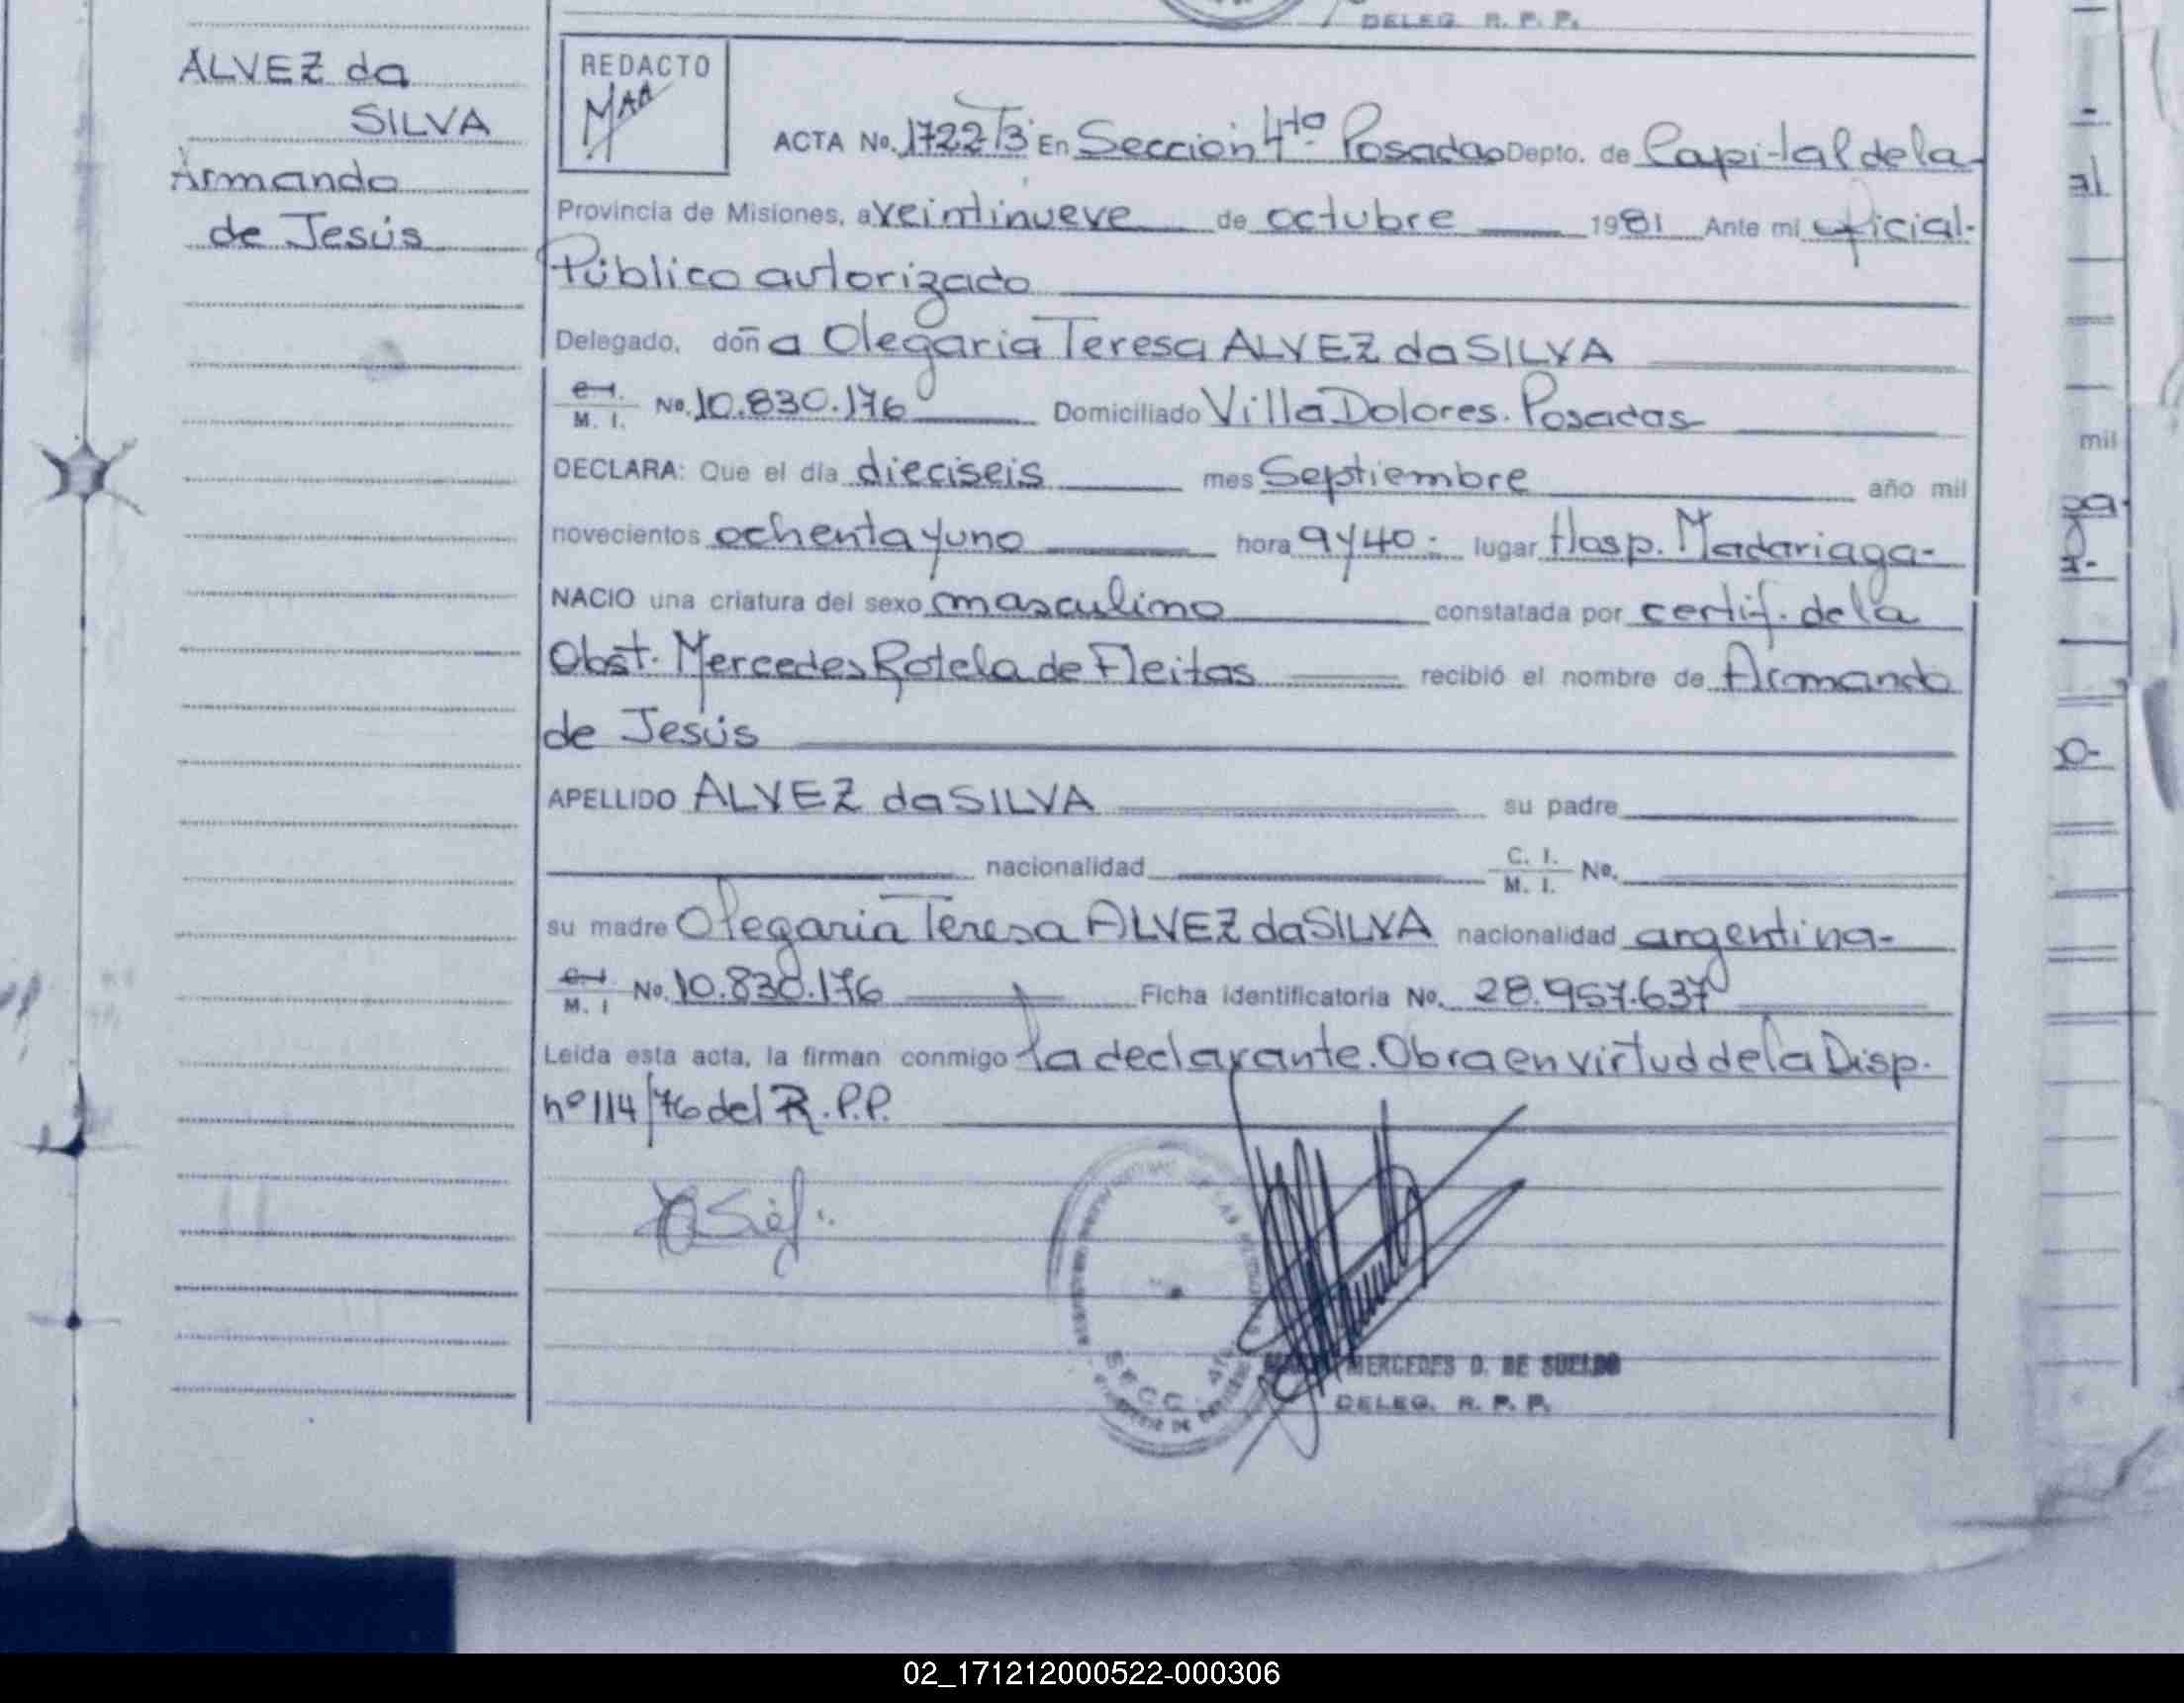 DELEG. R. P. P.
ALVEZ da
SILVA
Armando
de Jesús
REDACTO
MAA
ACTA No. 1722 T3 En Sección 4ta Posadas Depto. de Capital de la
Provincia de Misiones, a veintinueve de octubre 1981 Ante mi oficial
Público autorizado
Delegado, doña Olegaria Teresa ALVEZ da SILVA
C.I. M. I. No. 10.830.176 Domiciliado Villa Dolores. Posadas
DECLARA: Que el día dieciseis mes Septiembre año mil
novecientos ochenta y uno hora 9 y 40 - lugar Hosp. Madariaga-
NACIO una criatura del sexo masculino constatada por certif. de la
Obst. Mercedes Rotela de Fleitas recibió el nombre de Armando
de Jesús
APELLIDO ALVEZ da SILVA su padre
nacionalidad C. I. M. I. No.
su madre Olegaria Teresa ALVEZ da SILVA nacionalidad argentina-
C.I. M. I No. 10.830.176 Ficha identificatoria No. 28.957.637
Leída esta acta, la firman conmigo la declarante. Obra en virtud de la Disp.
nº 114/76 del R.P.P.
MERCEDES D. DE SUELDO
DELEG. R. P. P.
SECC. 4ta
mil
02_171212000522-000306